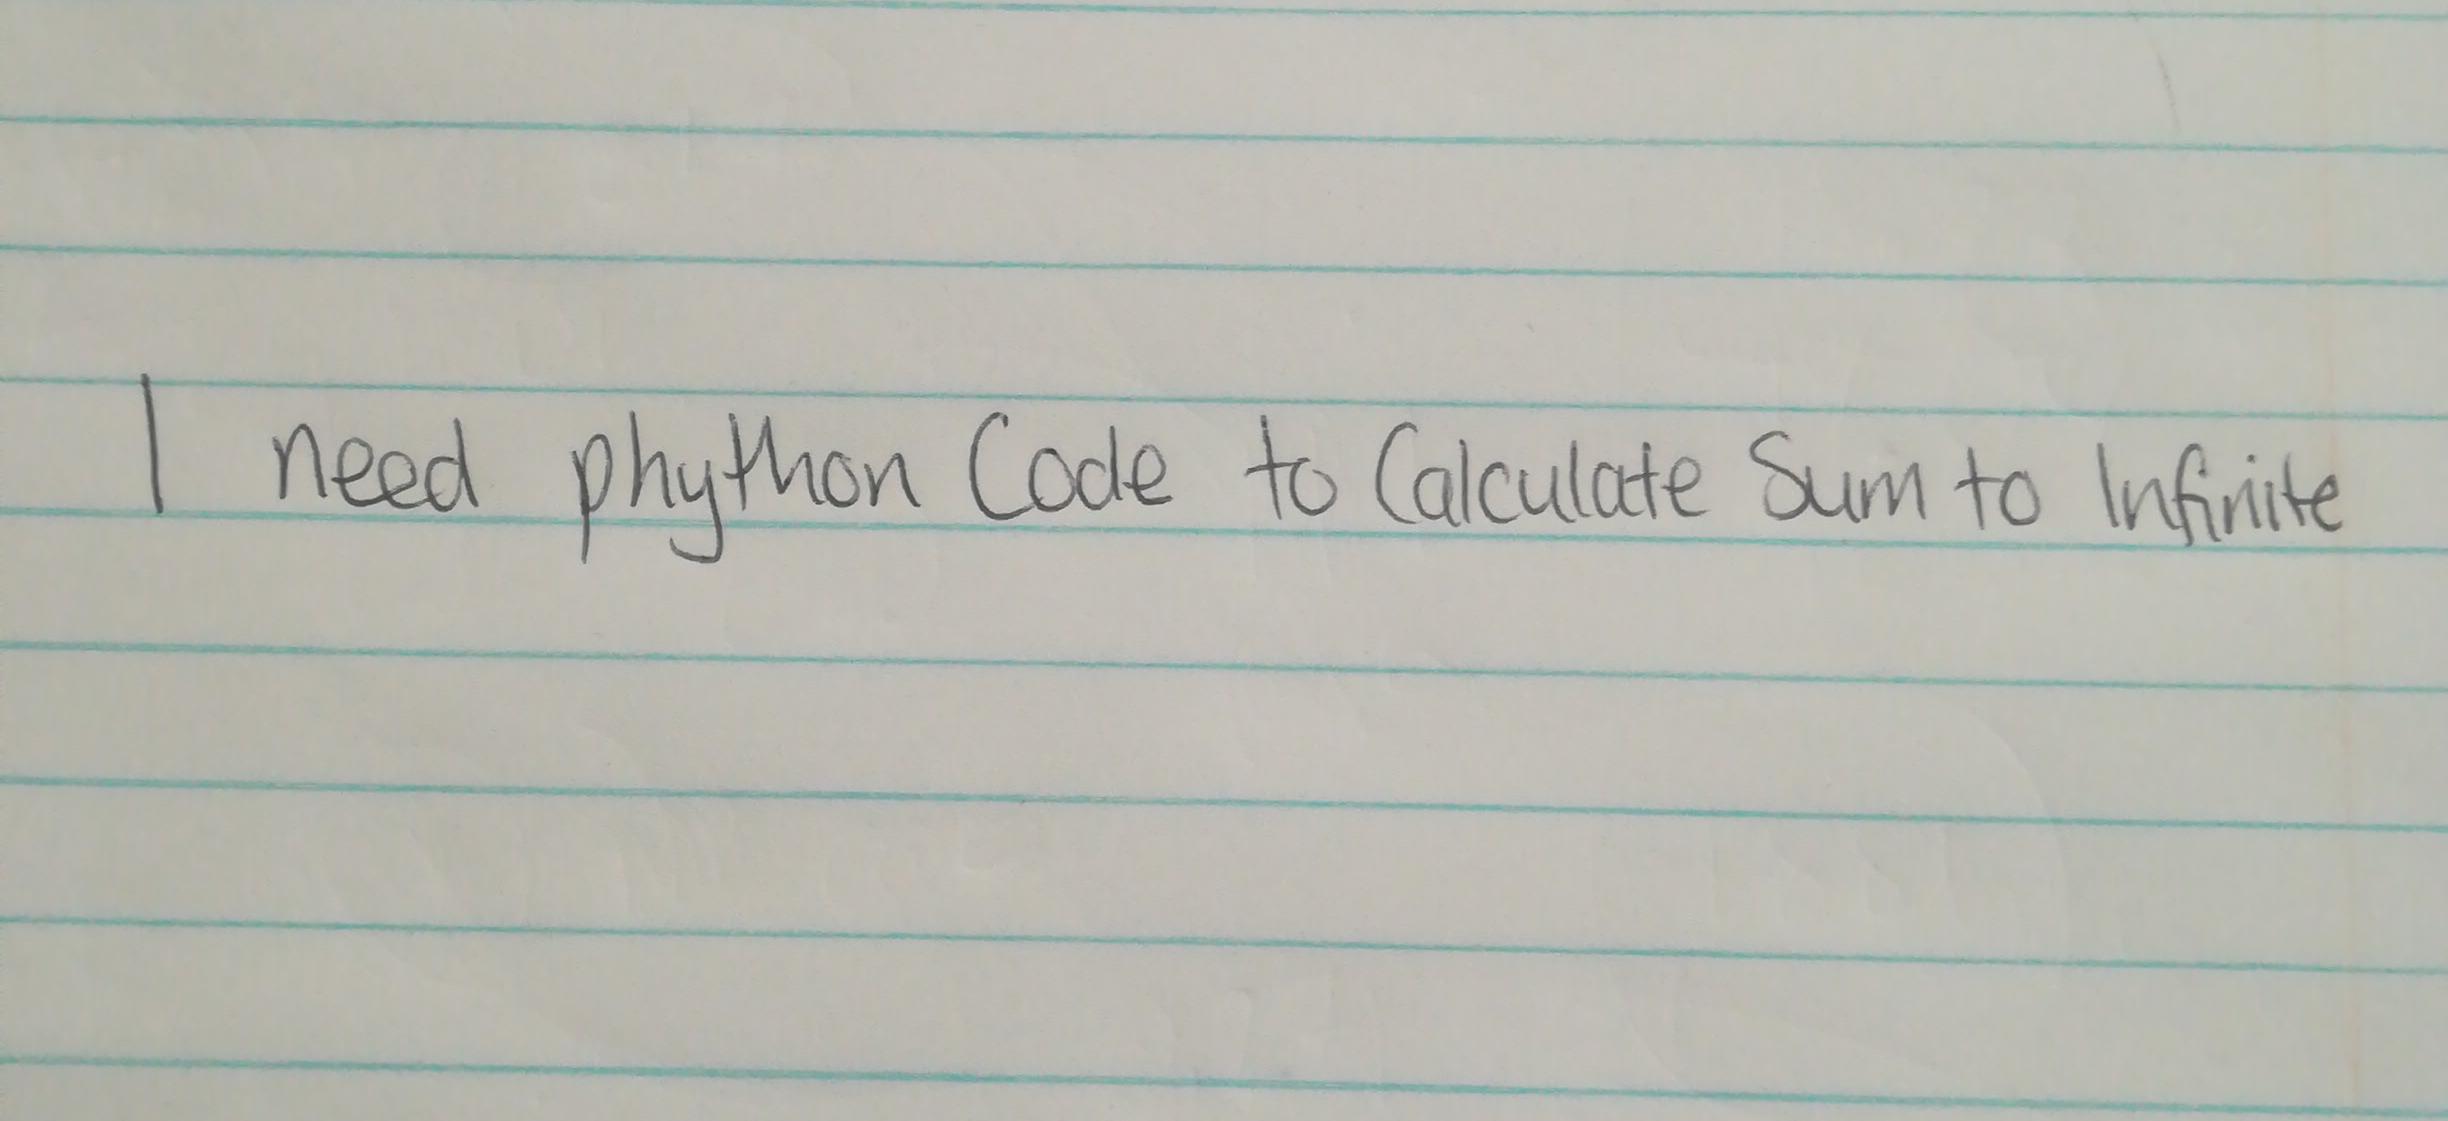 I need phython Code to Calculate Sum to Infinite